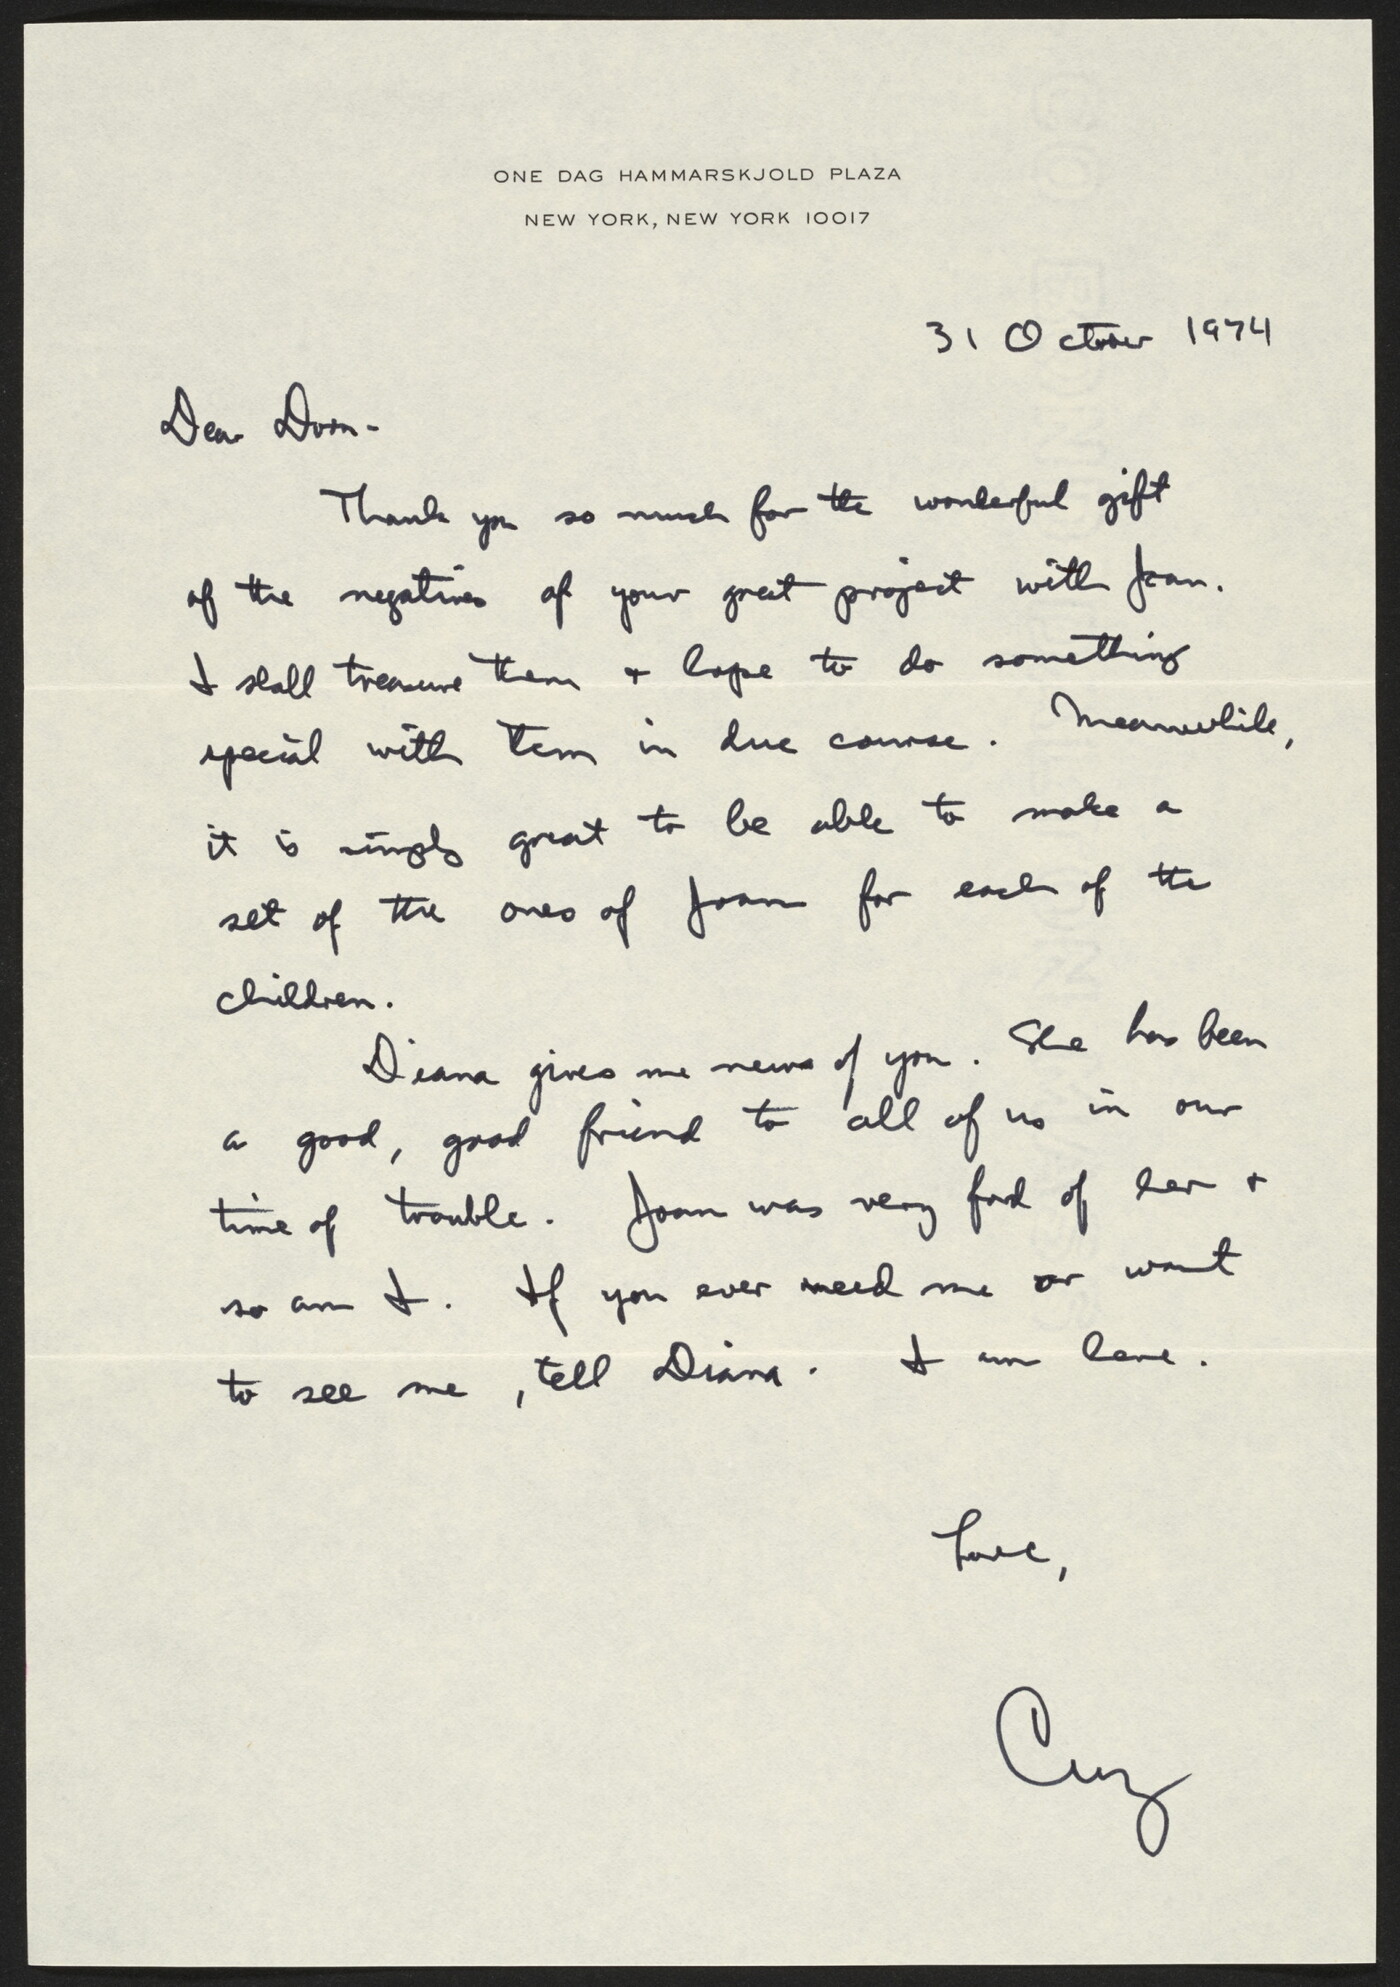 ONE DAG HAMMARSKJOLD PLAZA
NEW YORK, NEW YORK 10017
31 October 1974
Dear Doon-
Thank you so much for the wonderful gift
of the negatives of your great project with Joan.
I shall treasure them + hope to do something
special with them in due course. Meanwhile,
it is simply great to be able to make a
set of the ones of Joan for each of the
children.
Diana gives me news of you. She has been
a good, good friend to all of us in our
time of trouble. Joan was very fond of her +
so am I. If you ever need me or want
to see me, tell Diana. I am here.
Love,